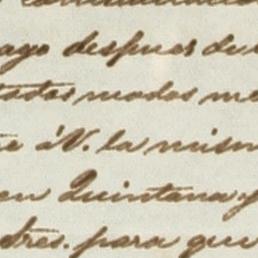 ago despues de
todos modos me
te á V. la mism
en Quintana y
dres. para que